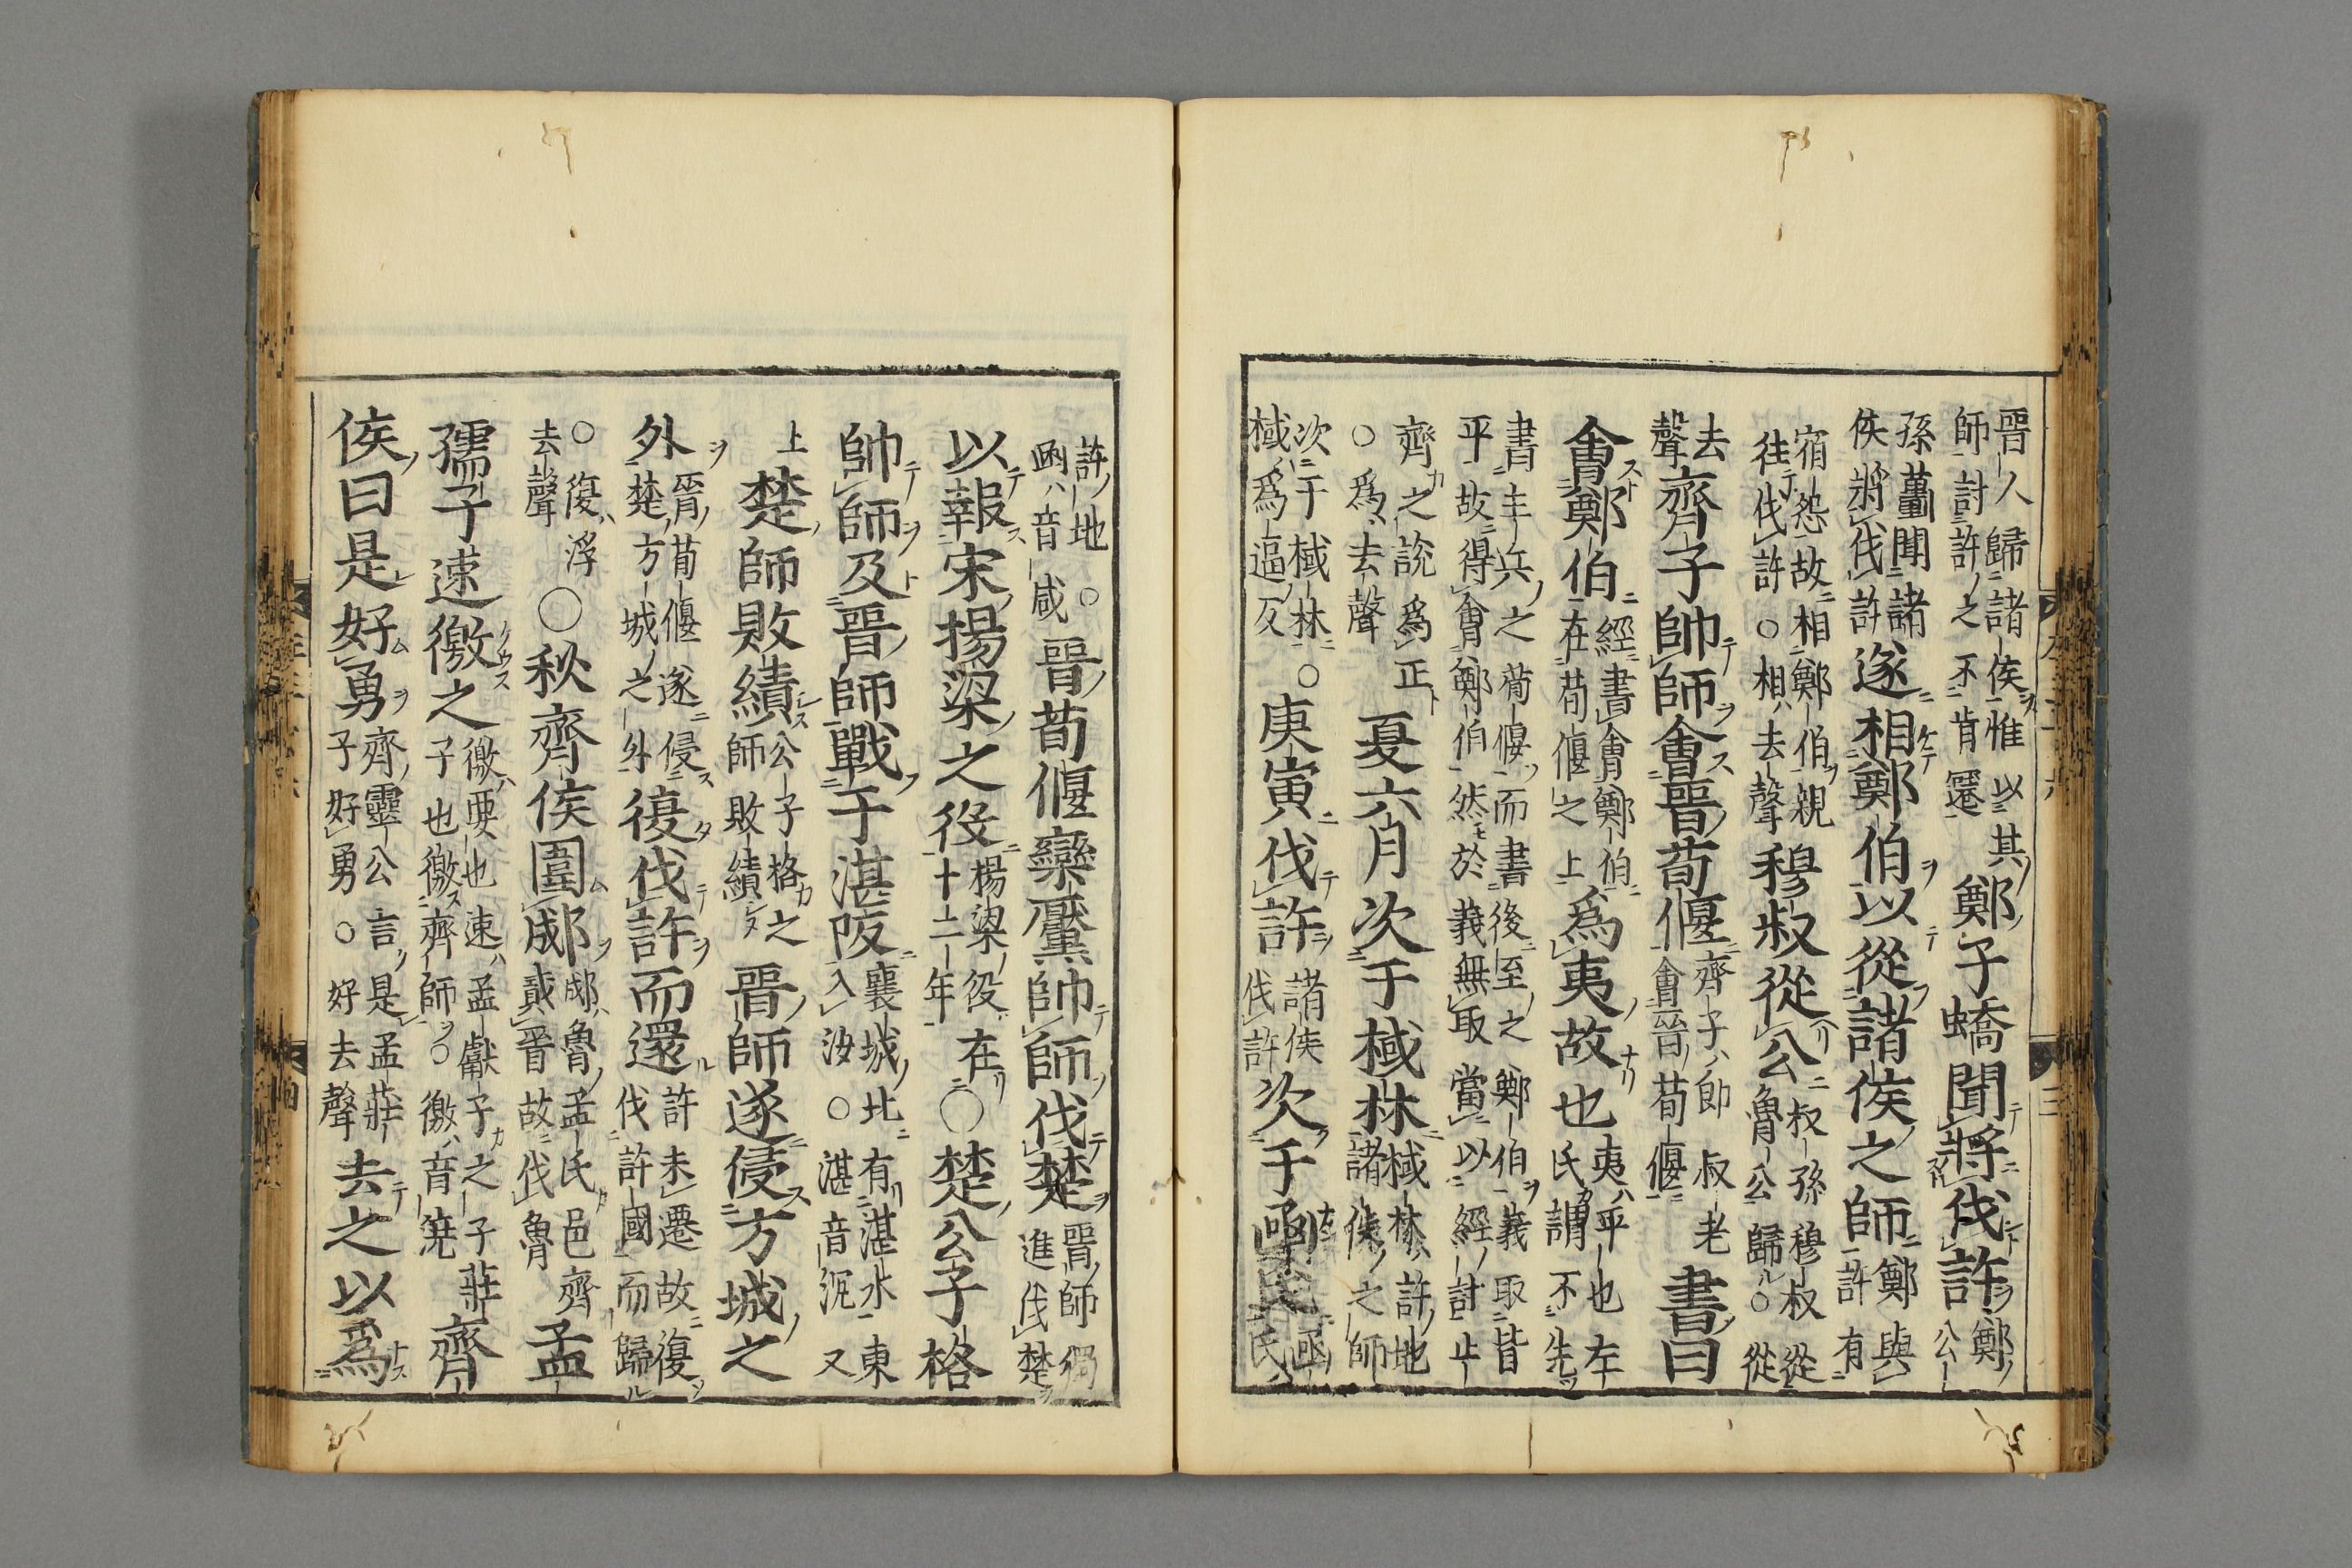 晉人歸諸侯惟以其師討許之不肯遷鄭子蟜聞將伐許鄭公
孫蠆聞諸侯將伐許遂相鄭伯以從諸侯之師鄭與許有
宿怨故相鄭伯親往伐許○相去聲穆叔從公叔孫穆叔從魯公歸○從
去聲齊子帥師會晉荀偃齊子即叔老會晉荀偃書曰
會鄭伯經書會鄭伯在荀偃之上為夷故也夷平也左氏謂不先
書主兵之荀偃而書後至之鄭伯義取皆平故得會鄭伯然於義無取當以經討止
齊之說為正○為去聲夏六月次于棫林棫林許地諸侯之師
次于棫林○棫為逼反庚寅伐許諸侯伐許次于函氏函氏
許地○函音咸晉荀偃欒黶帥師伐楚晉師獨進伐楚
以報宋揚梁之役楊梁役在十二年○楚公子格
帥師及晉師戰于湛阪襄城北有湛水東入汝○湛音沉又
上楚師敗績公子格之師敗績晉師遂侵方城之
外晉荀偃遂侵楚方城之外復伐許而還許未遷故復伐許國而歸
○復浮去聲○秋齊侯圍郕郕魯孟氏邑齊貳晉故伐魯孟
孺子速徼之徼要也速孟獻子之子莊子也徼齊師○徼音澆齊
侯曰是好勇齊靈公言是孟莊子好勇○好去聲去之以為